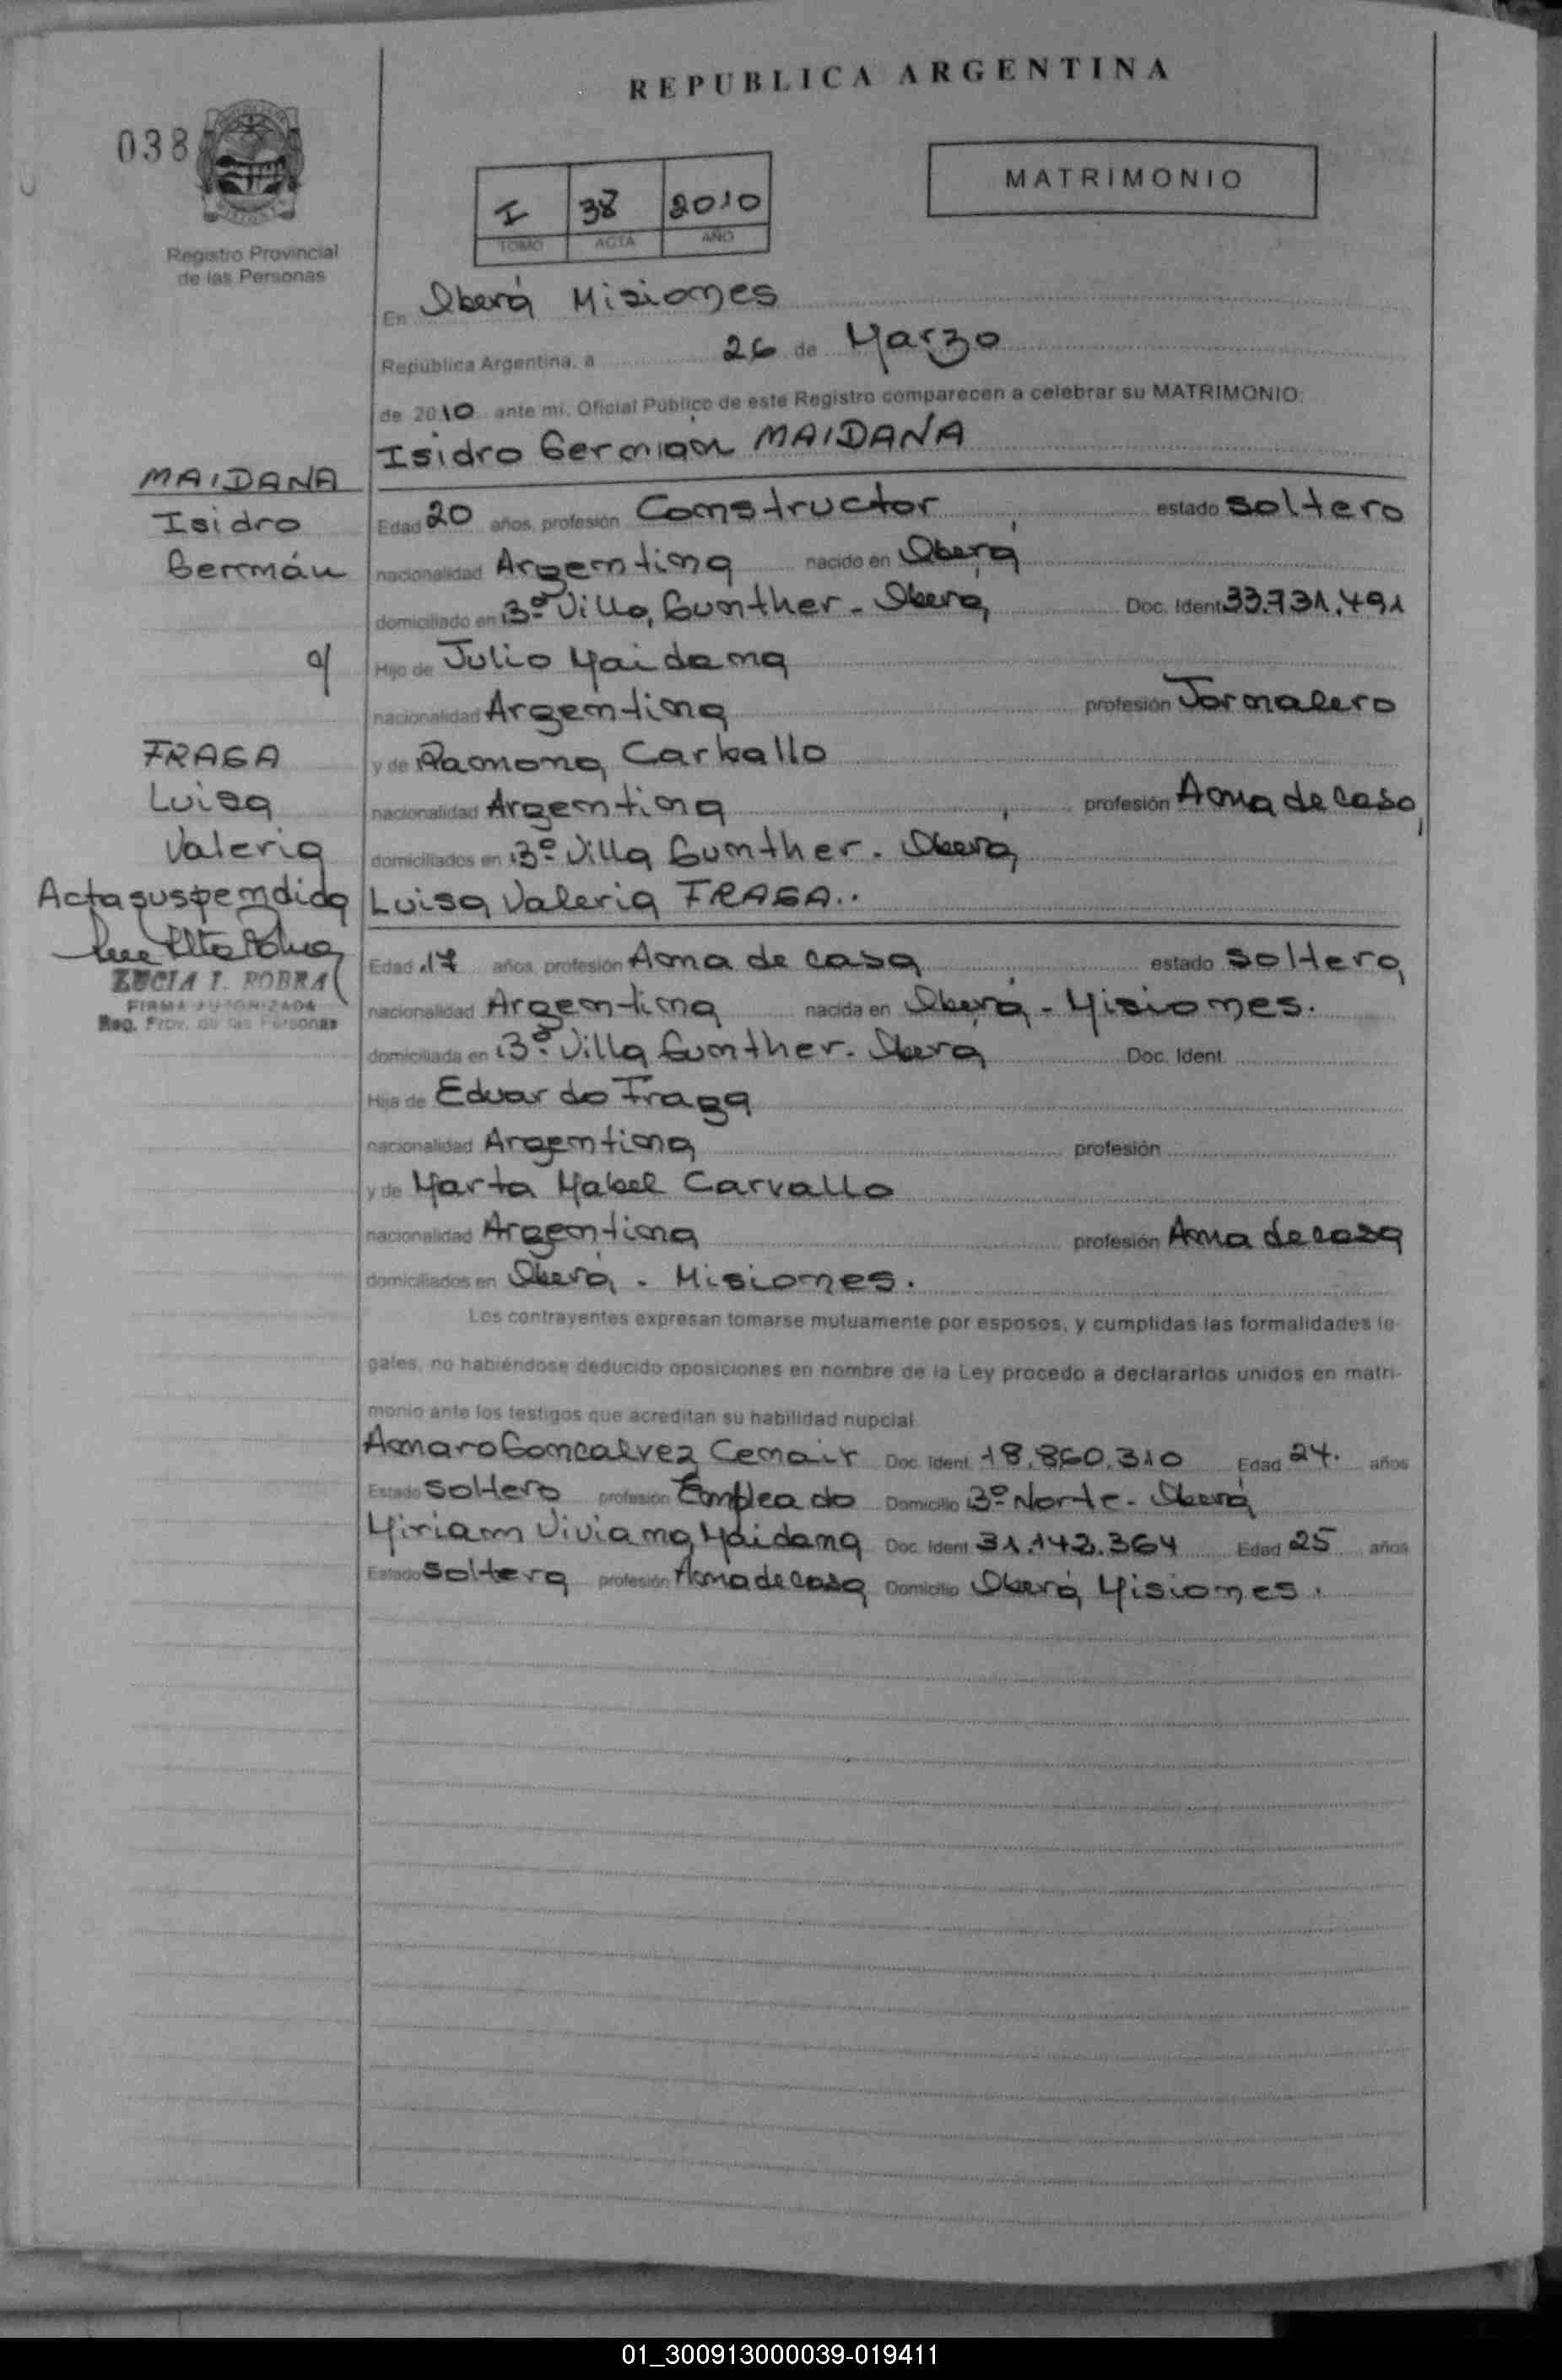 REPUBLICA ARGENTINA
038
MATRIMONIO
I 38 2010
TOMO ACTA AÑO
Registro Provincial
de las Personas
En Oberá Misiones
República Argentina, a 26 de Marzo
de 2010 ante mi, Oficial Público de este Registro comparecen a celebrar su MATRIMONIO:
Isidro Germán MAIDANA
MAIDANA
Isidro
Germán
Edad 20 años, profesión Constructor estado soltero
nacionalidad Argentina nacido en Oberá
domiciliado en Villa Gunther - Oberá Doc. Ident 33.731.491
Hijo de Julio Maidana
nacionalidad Argentina profesión Jornalero
y de Ramona Carballo
nacionalidad Argentina profesión Ama de casa
domiciliados en Villa Gunther - Oberá
FRAGA
Luisa
Valeria
Acta suspendida
LUCIA I. POBRA
FIRMA AUTORIZADA
Reg. Prov. de las Personas
Luisa Valeria FRAGA..
Edad 17 años, profesión Ama de casa estado soltera
nacionalidad Argentina nacida en Oberá - Misiones.
domiciliada en Villa Gunther - Oberá Doc. Ident.
Hija de Eduardo Fraga
nacionalidad Argentina profesión
y de Marta Mabel Carvallo
nacionalidad Argentina profesión Ama de casa
domiciliados en Oberá - Misiones.
Los contrayentes expresan tomarse mutuamente por esposos, y cumplidas las formalidades le-
gales, no habiéndose deducido oposiciones en nombre de la Ley procedo a declararlos unidos en matri-
monio ante los testigos que acreditan su habilidad nupcial
Amaro Goncalvez Cenair Doc. Ident. 18.860.310 Edad 24. años
Estado soltero profesión Empleado Domicilio 3º Norte - Oberá
Miriam Viviana Maidana Doc. Ident. 31.142.364 Edad 25 años
Estado soltera profesión Ama de casa Domicilio Oberá Misiones.
01_300913000039-019411